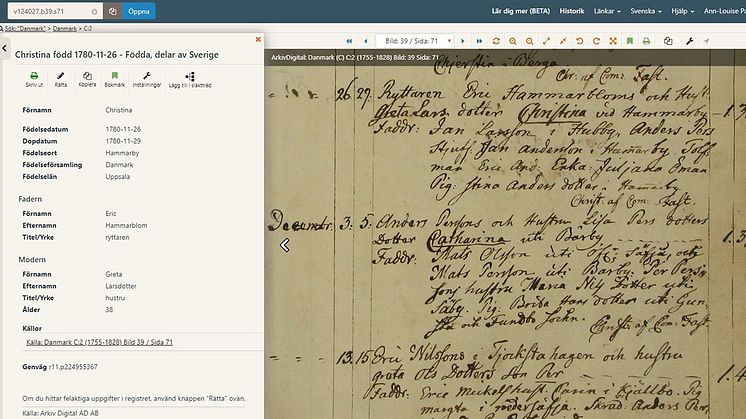 v124027.b39.s71
Öppna
Lär dig mer (BETA)
Historik
Länkar
Svenska
Hjälp
Ann-Louise Pa
Sök: "Danmark" > Danmark > C:2
Christina född 1780-11-26 - Födda, delar av Sverige
Skriv ut
Rätta
Kopiera
Bokmärk
Inställningar
Lägg till i släktträd
Förnamn Christina
Födelsedatum 1780-11-26
Dopdatum 1780-11-29
Födelseort Hammarby
Födelseförsamling Danmark
Födelselän Uppsala
Fadern
Förnamn Eric
Efternamn Hammarblom
Titel/Yrke ryttaren
Modern
Förnamn Greta
Efternamn Larsdotter
Titel/Yrke hustru
Ålder 38
Källor
Källa: Danmark C:2 (1755-1828) Bild 39 / Sida 71
Genväg r11.p224955367
Om du hittar felaktiga uppgifter i registret, använd knappen "Rätta" ovan.
Källa: Arkiv Digital AD AB
Bild: 39 / Sida: 71
ArkivDigital: Danmark (C) C:2 (1755-1828) Bild 39 Sida: 71
Chierstin i Berga
Chr: af Com: Fast.
26. 29. Ryttaren Eric Hammarbloms och Hust:
Greta Lars dotter Christina vid Hammarby
Faddr: Jan Larsson i Hubby, Anders Pers
Jan Anderson i Hamarby
man Eric And: Enka: Juliana
Pig: Stina Anders dotter i Hamarby
Christ: af Com: Fast.
Decembr. 3. 5. Anders Persons och Hustru Lisa Pers dotters
Dotter Catharina uti Bärby
Faddr: Mats Olsson uti Säfja, och
Mats Person uti Barby: Per Pers
sons hustru Maria Nils Dotter uti
Säby. Pig: Brita Hans dotter uti Gun
sta och Funbo Sochn. Christ: af Com: Fast.
13. 15 Eric Nilssons i Tjocksta hagen och hustru
Greta Ols Dotters Son Per
Faddr: Eric Carin i Kjällbo. Pig
i nedersäfja. Anders Per